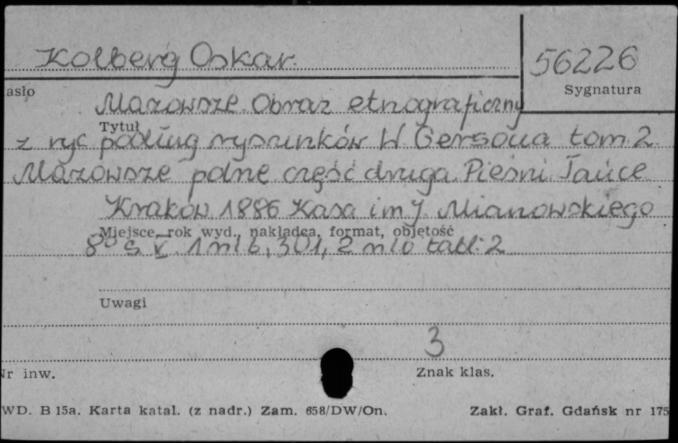 Kolberg Oskar
56226
asło
Sygnatura
Mazowsze. Obraz etnograficzny
Tytuł
z ryc podług rysunków W Gersona tom 2
Mazowsze polne część druga. Pieśni Tańce
Kraków 1886 Kasa im J. Mianowskiego
Miejsce, rok wyd., nakładca, format, objętość
8° s V. 1 nlb, 301, 2 nlb tabl. 2
Uwagi
3
Nr inw.
Znak klas.
WD. B 15a. Karta katal. (z nadr.) Zam. 658/DW/On.
Zakł. Graf. Gdańsk nr 175